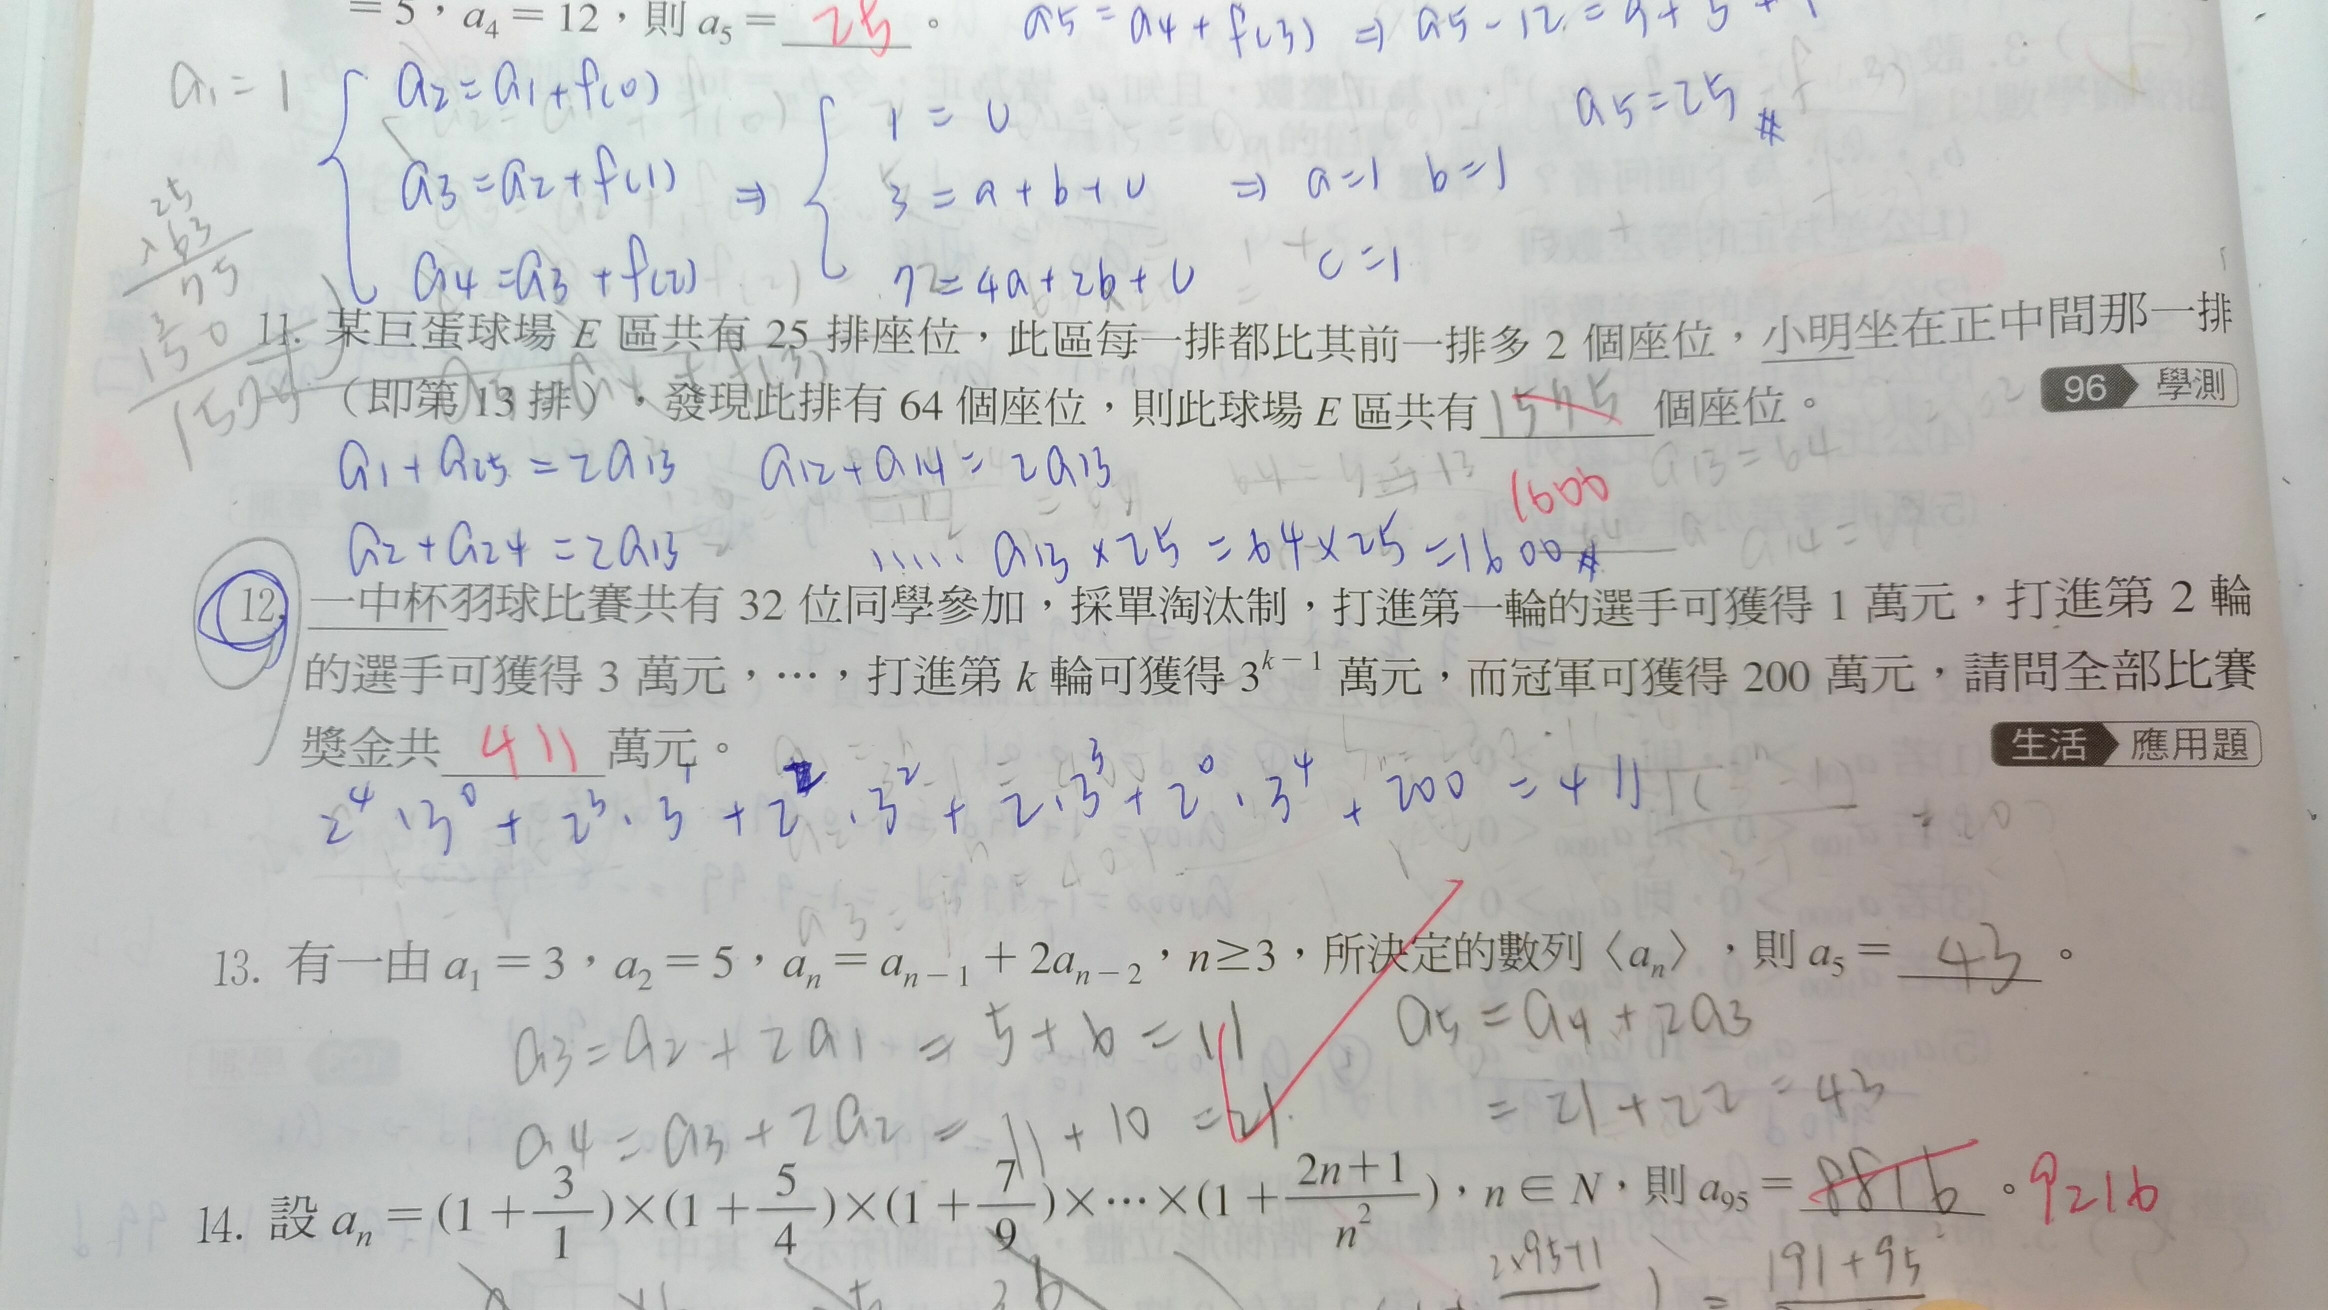 = 5，a₄ = 12，則 a₅ = 25 。 a5 = a4 + f(3) ⇒ a5 - 12 = 9 + 3 + 1
a1 = 1 a2 = a1 + f(0) 1 = c a5 = 25 #
a3 = a2 + f(1) ⇒ 3 = a + b + c ⇒ a = 1 b = 1
a4 = a3 + f(2) 7 = 4a + 2b + c c = 1
25
× 63
75
150
1575
11. 某巨蛋球場 E 區共有 25 排座位，此區每一排都比其前一排多 2 個座位，小明坐在正中間那一排
（即第 13 排），發現此排有 64 個座位，則此球場 E 區共有 1575 個座位。 96 學測
1600
a1 + a25 = 2a13 a12 + a14 = 2a13 a13 = 64
a2 + a24 = 2a13 ..... a13 × 25 = 64 × 25 = 1600 #
12. 一中杯羽球比賽共有 32 位同學參加，採單淘汰制，打進第一輪的選手可獲得 1 萬元，打進第 2 輪
的選手可獲得 3 萬元，…，打進第 k 輪可獲得 3ᵏ⁻¹ 萬元，而冠軍可獲得 200 萬元，請問全部比賽
獎金共 411 萬元。 生活 應用題
2⁴·3⁰ + 2³·3¹ + 2²·3² + 2·3³ + 2⁰·3⁴ + 200 = 411
13. 有一由 a₁ = 3，a₂ = 5，aₙ = aₙ₋₁ + 2aₙ₋₂，n≥3，所決定的數列〈aₙ〉，則 a₅ = 43 。
a3 = a2 + 2a1 = 5 + 6 = 11 a5 = a4 + 2a3
a4 = a3 + 2a2 = 11 + 10 = 21 = 21 + 22 = 43
14. 設 aₙ = (1 + 3/1) × (1 + 5/4) × (1 + 7/9) × … × (1 + (2n+1)/n²)，n ∈ N，則 a₉₅ = 8816 。9216
2×95+1 = 191 + 95²